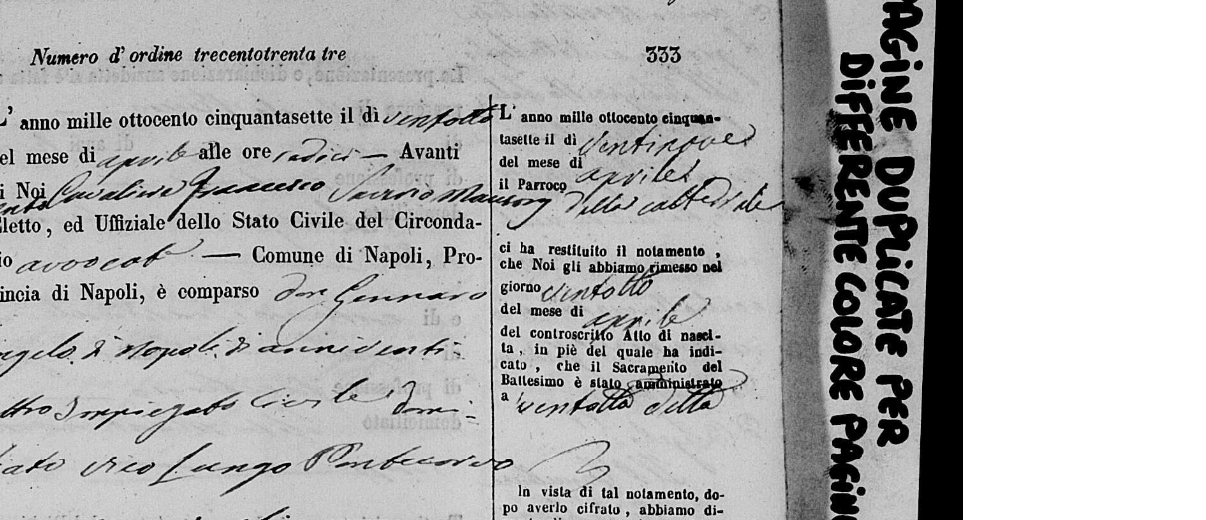 Numero d' ordine trecentotrenta tre
333
L' anno mille ottocento cinquantasette il dì ventotto
el mese di aprile alle ore sedici — Avanti
i Noi Cavaliere Francesco Saverio
Eletto, ed Uffiziale dello Stato Civile del Circonda-
io avvocat — Comune di Napoli, Pro-
incia di Napoli, è comparso don Gennaro
ngelo di Napoli di anni venti
ttro Impiegato Civile domi-
iato vico Lungo Pontecorvo
L' anno mille ottocento cinquan-
tasette il dì ventinove
del mese di aprile
il Parroco
della cattedrale
ci ha restituito il notamento ,
che Noi gli abbiamo rimesso nel
giorno ventotto
del mese di aprile
del controscritto Atto di nasci-
ta , in piè del quale ha indi-
cato , che il Sacramento del
Battesimo è stato amministrato
a ventotto detto
In vista di tal notamento, do-
po averlo cifrato , abbiamo di-
PAGINE DUPLICATE PER
DIFFERENTE COLORE PAGIN